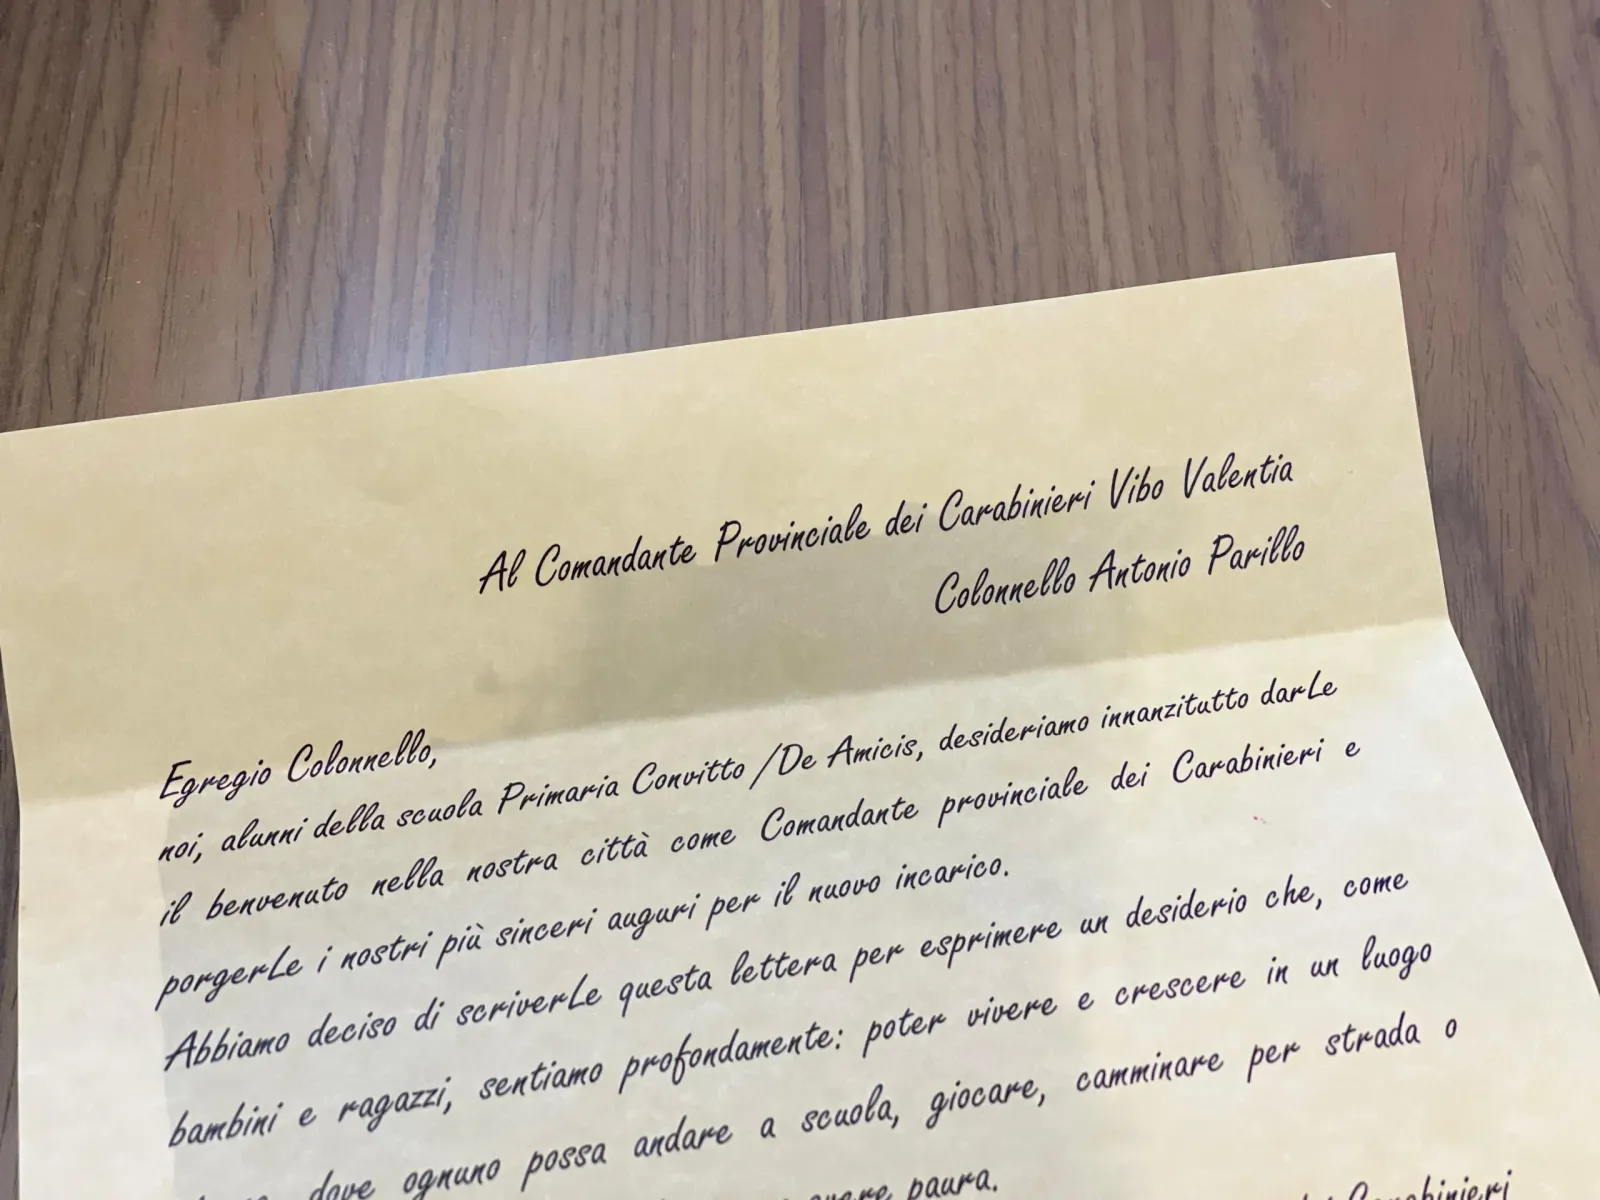 Al Comandante Provinciale dei Carabinieri Vibo Valentia
Colonnello Antonio Parillo
Egregio Colonnello,
noi, alunni della scuola Primaria Convitto /De Amicis, desideriamo innanzitutto darLe
il benvenuto nella nostra città come Comandante provinciale dei Carabinieri e
porgerLe i nostri più sinceri auguri per il nuovo incarico.
Abbiamo deciso di scriverLe questa lettera per esprimere un desiderio che, come
bambini e ragazzi, sentiamo profondamente: poter vivere e crescere in un luogo
dove ognuno possa andare a scuola, giocare, camminare per strada o
avere paura.
Carabinieri